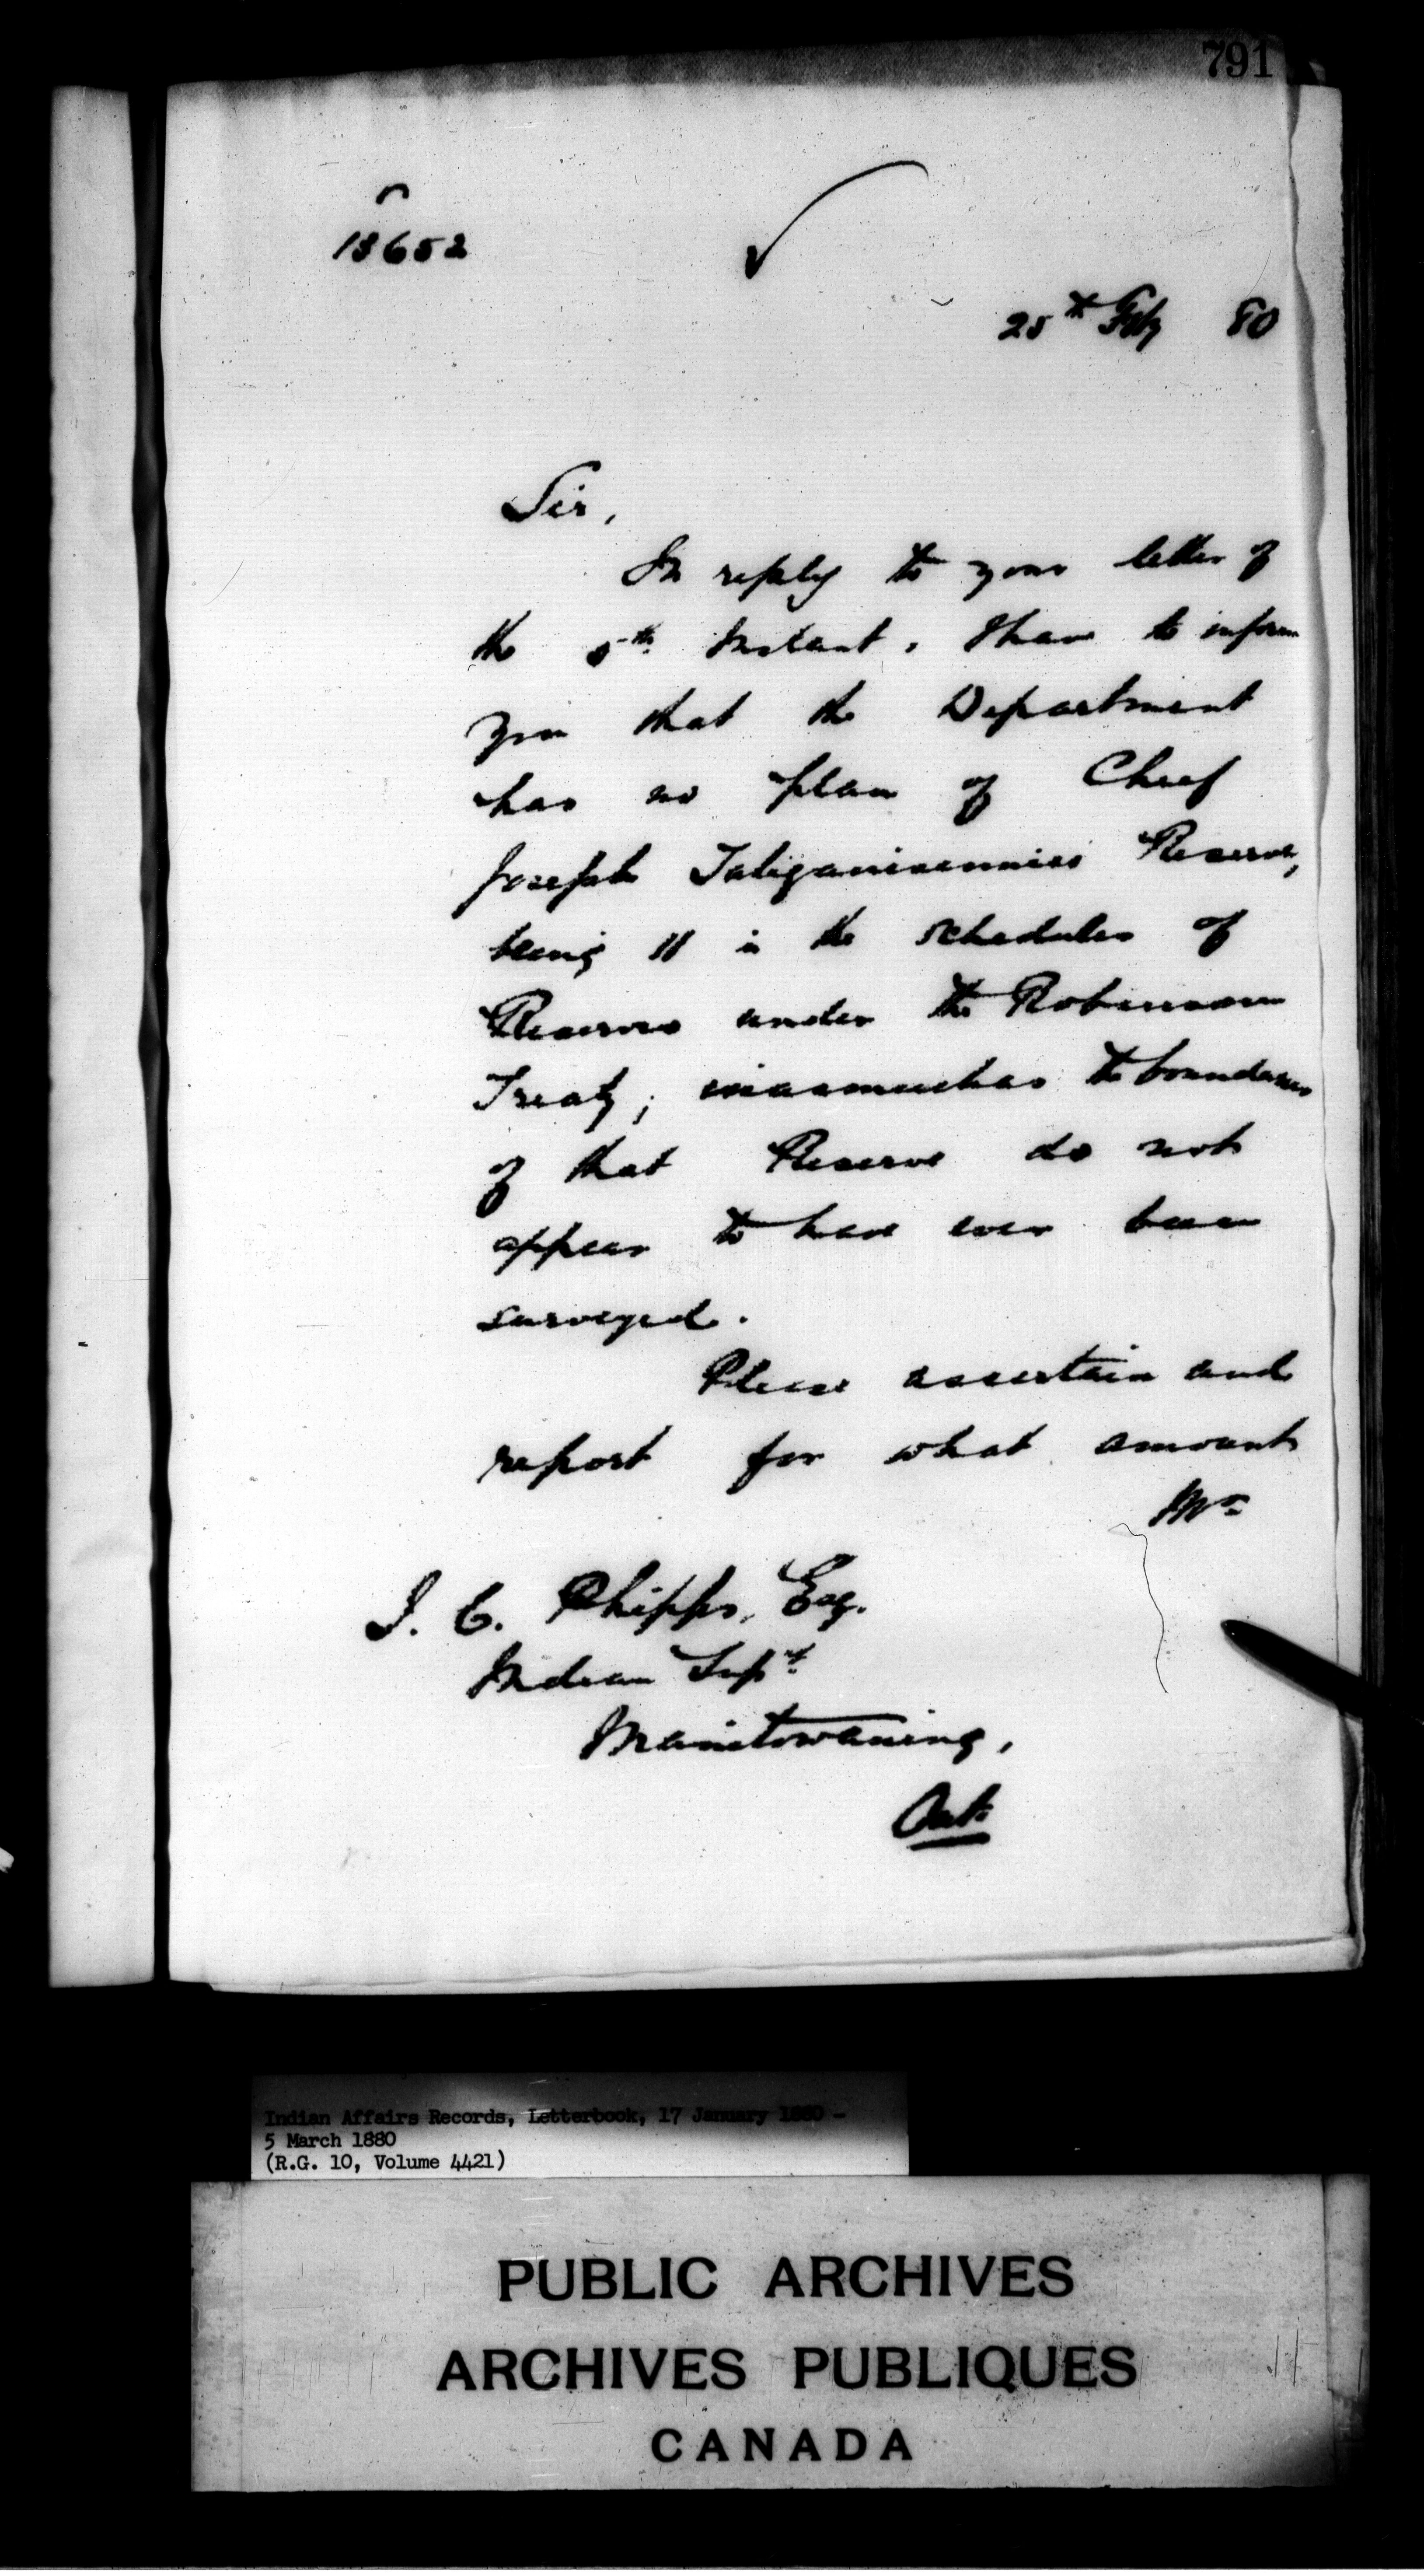 791
13652
25th Feby 80
Sir,
In reply to your letter of
the 5th Instant, I have to inform
you that the Department
has no plan of Chief
Joseph Reserve,
being 11 in the schedules of
Reserves under the Robinson
Treaty; inasmuchas the boundaries
of that Reserve do not
appear to have ever been
surveyed.
Please ascertain and
report for what amount
Mr
J. C. Phipps, Esq.
Indian Supt
Manitowaning,
Ont.
Indian Affairs Records, Letterbook, 17 January 1880 -
5 March 1880
(R.G. 10, Volume 4421)
PUBLIC ARCHIVES
ARCHIVES PUBLIQUES
CANADA